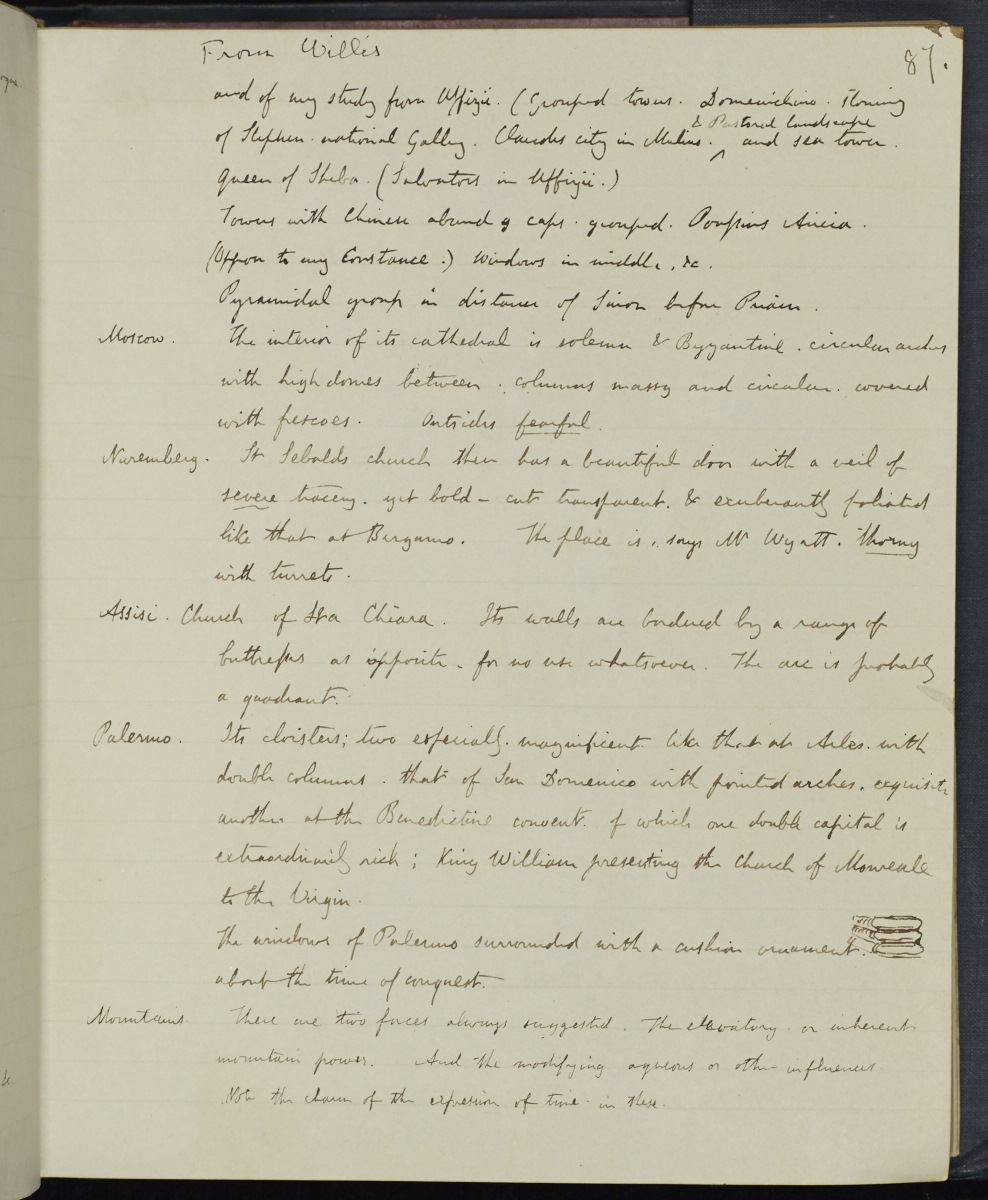 From Willis
87.
and of my study from Uffizii. (Grouped towns. Domenichino. Stoning
& Pastoral landscape
of Stephen. national Gallery. Claudes city in Molino. ^ and sea tower.
Queen of Sheba. (Salvators in Uffizii.)
Towns with Chinese caps. grouped. Poussins Aricia.
(Oppon to my Constance.) Windows in middle, &c.
Pyramidal group in distance of Sinon before Priam.
Moscow. The interior of its cathedral is solemn & Byzantine. circular arches
with high domes between. columns massy and circular. covered
with frescoes. Outsides fearful.
Nuremberg. St Sebalds church there has a beautiful door with a veil of
severe tracery. yet bold - cut transparent. & exuberantly foliated
like that at Bergamo. The place is, says Mr Wyatt. thorny
with turrets.
Assisi. Church of Sta Chiara. Its walls are bordered by a range of
buttresses as opposite. for no use whatsoever. The arc is probably
a quadrant.
Palermo. Its cloisters; two especially. magnificent. like that at Arles. with
double columns. that of San Domenico with pointed arches. exquisite
another at the Benedictine convent. of which one double capital is
extraordinarily rich; King William presenting the Church of Monreale
to the Virgin.
The windows of Palermo surrounded with a cushion ornament.
about the time of conquest.
Mountains. There are two forces always suggested. The elevatory or inherent
mountain power. And the modifying aqueous or other influences
Note the charm of the expression of time in these.